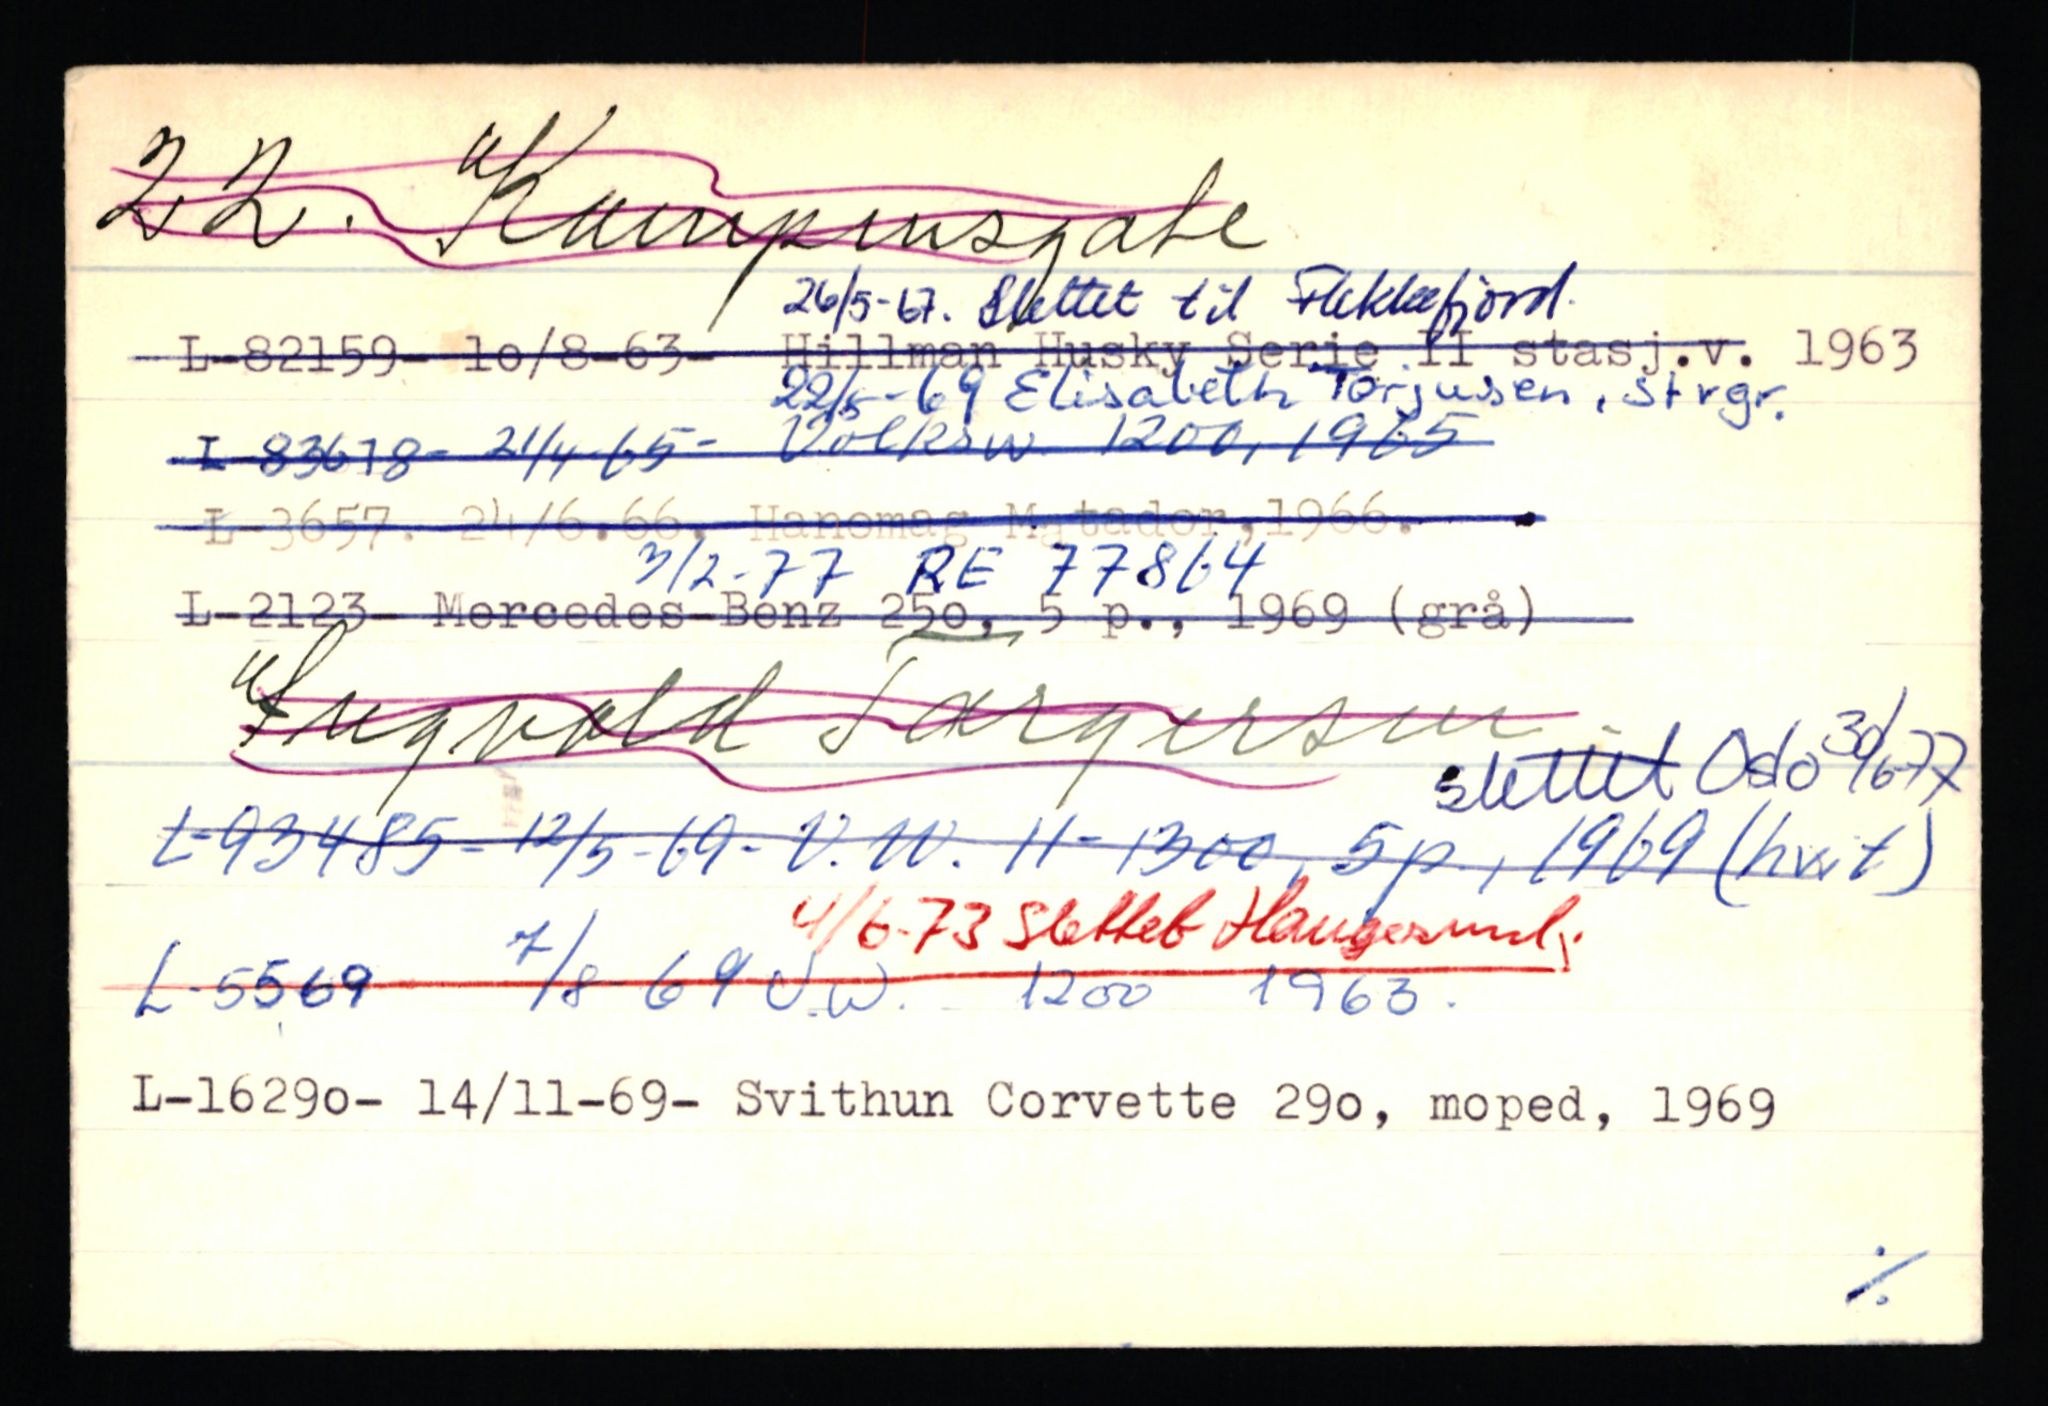 22. Kampensgate
26/5-67. Slettet til Flekkefjord.
L-82159- 1o/8-63- Hillman Husky Serie II stasj.v. 1963
22/5-69 Elisabeth Torjusen, Strgr.
L-83678- 21/4-65- Volksw. 1200, 1965
L-3657. 24/6.66. Hanomag Matador, 1966.
3/2-77 RE 77864
L-2123- Mercedes-Benz 25o, 5 p., 1969 (grå)
Ingvald Torgersen
slettet Oslo 30/6-77
L-93485- 12/5-69- V.W. 11-1300, 5 p., 1969 (hvit)
4/6-73 Slettet Haugesund.
L-5569 7/8-69 V.W. 1200 1963.
L-1629o- 14/11-69- Svithun Corvette 29o, moped, 1969